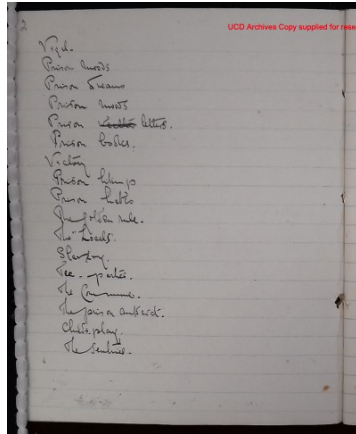 2
UCD Archives Copy supplied for rese
Vigil.
Prison moods
Prison Dreams
Prison meals
Prison letters.
Prison bodies.
Victory
Prison
Prison habits
The golden rule.
The "Locals".
Slavery.
Tea-parties.
The Commune.
The prison
Chess-play.
The Sentries.